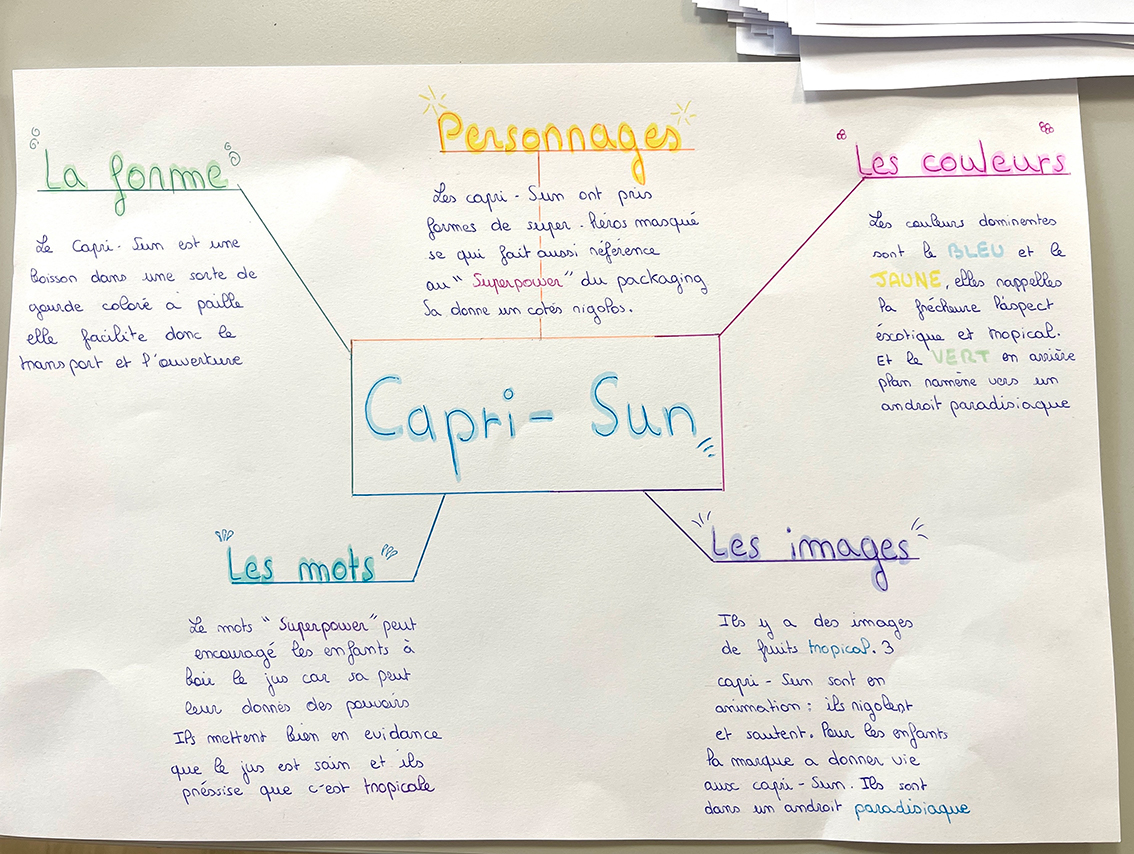 La forme
Le Capri-Sun est une
boisson dans une sorte de
gourde coloré à paille
elle facilite donc le
transport et l'ouverture
Personnages
Les capri-Sun ont pris
formes de super-héros masqué
se qui fait aussi référence
au "Superpower" du packaging
Sa donne un cotés rigolos.
Les couleurs
Les couleurs dominentes
sont le BLEU et le
JAUNE, elles rappelles
la frécheure l'aspect
éxotique et tropical.
Et le VERT en arrière
plan ramène vers un
androit paradisiaque
Capri-Sun
Les mots
Le mots "Superpower" peut
encouragé les enfants à
boire le jus car sa peut
leur donnes des pouvoirs
Ils mettent bien en evidance
que le jus est sain et ils
préssise que c'est tropicale
Les images
Ils y a des images
de fruits tropical. 3
capri-Sun sont en
animation : ils rigolent
et sautent. Pour les enfants
la marque a donner vie
aux capri-Sun. Ils sont
dans un androit paradisiaque